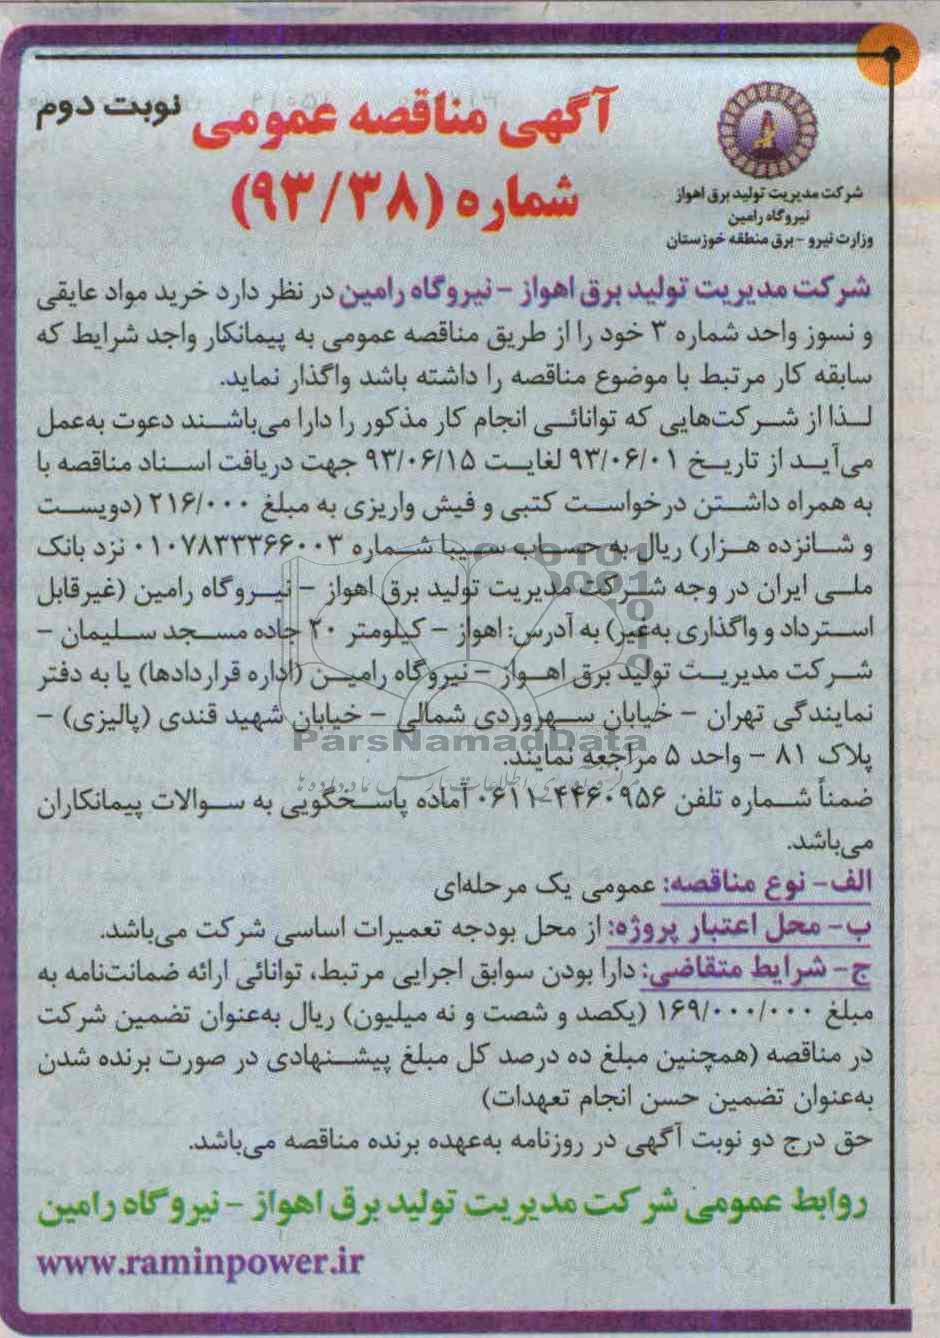 نوبت دوم
آگهی مناقصه عمومی
شماره (۹۳/۳۸)
شرکت مدیریت تولید برق اهواز
نیروگاه رامین
وزارت نیرو - برق منطقه خوزستان
شرکت مدیریت تولید برق اهواز - نیروگاه رامین در نظر دارد خرید مواد عایقی
و نسوز واحد شماره ۳ خود را از طریق مناقصه عمومی به پیمانکار واجد شرایط که
سابقه کار مرتبط با موضوع مناقصه را داشته باشد واگذار نماید.
لذا از شرکت‌هایی که توانائی انجام کار مذکور را دارا می‌باشند دعوت به‌عمل
می‌آید از تاریخ ۹۳/۰۶/۰۱ لغایت ۹۳/۰۶/۱۵ جهت دریافت اسناد مناقصه با
به همراه داشتن درخواست کتبی و فیش واریزی به مبلغ ۲۱۶/۰۰۰ (دویست
و شانزده هزار) ریال به حساب سیبا شماره ۰۱۰۷۸۳۳۳۶۶۰۰۳ نزد بانک
ملی ایران در وجه شرکت مدیریت تولید برق اهواز - نیروگاه رامین (غیرقابل
استرداد و واگذاری به‌غیر) به آدرس: اهواز - کیلومتر ۲۰ جاده مسجد سلیمان -
شرکت مدیریت تولید برق اهواز - نیروگاه رامین (اداره قراردادها) یا به دفتر
نمایندگی تهران - خیابان سهروردی شمالی - خیابان شهید قندی (پالیزی) -
پلاک ۸۱ - واحد ۵ مراجعه نمایند.
ParsNamadData
ضمناً شماره تلفن ۴۴۶۰۹۵۶-۰۶۱۱ آماده پاسخگویی به سوالات پیمانکاران
می‌باشد.
الف- نوع مناقصه: عمومی یک مرحله‌ای
ب- محل اعتبار پروژه: از محل بودجه تعمیرات اساسی شرکت می‌باشد.
ج- شرایط متقاضی: دارا بودن سوابق اجرایی مرتبط، توانائی ارائه ضمانت‌نامه به
مبلغ ۱۶۹/۰۰۰/۰۰۰ (یکصد و شصت و نه میلیون) ریال به‌عنوان تضمین شرکت
در مناقصه (همچنین مبلغ ده درصد کل مبلغ پیشنهادی در صورت برنده شدن
به‌عنوان تضمین حسن انجام تعهدات)
حق درج دو نوبت آگهی در روزنامه به‌عهده برنده مناقصه می‌باشد.
روابط عمومی شرکت مدیریت تولید برق اهواز - نیروگاه رامین
www.raminpower.ir